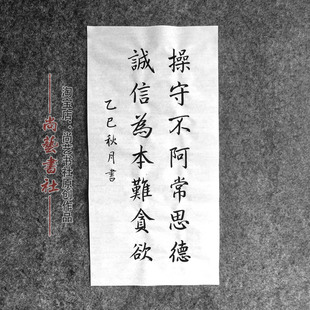 操守不阿常思德
誠信為本難貪欲
乙巳秋月書
淘宝店：尚艺书社原创作品
尚藝書社